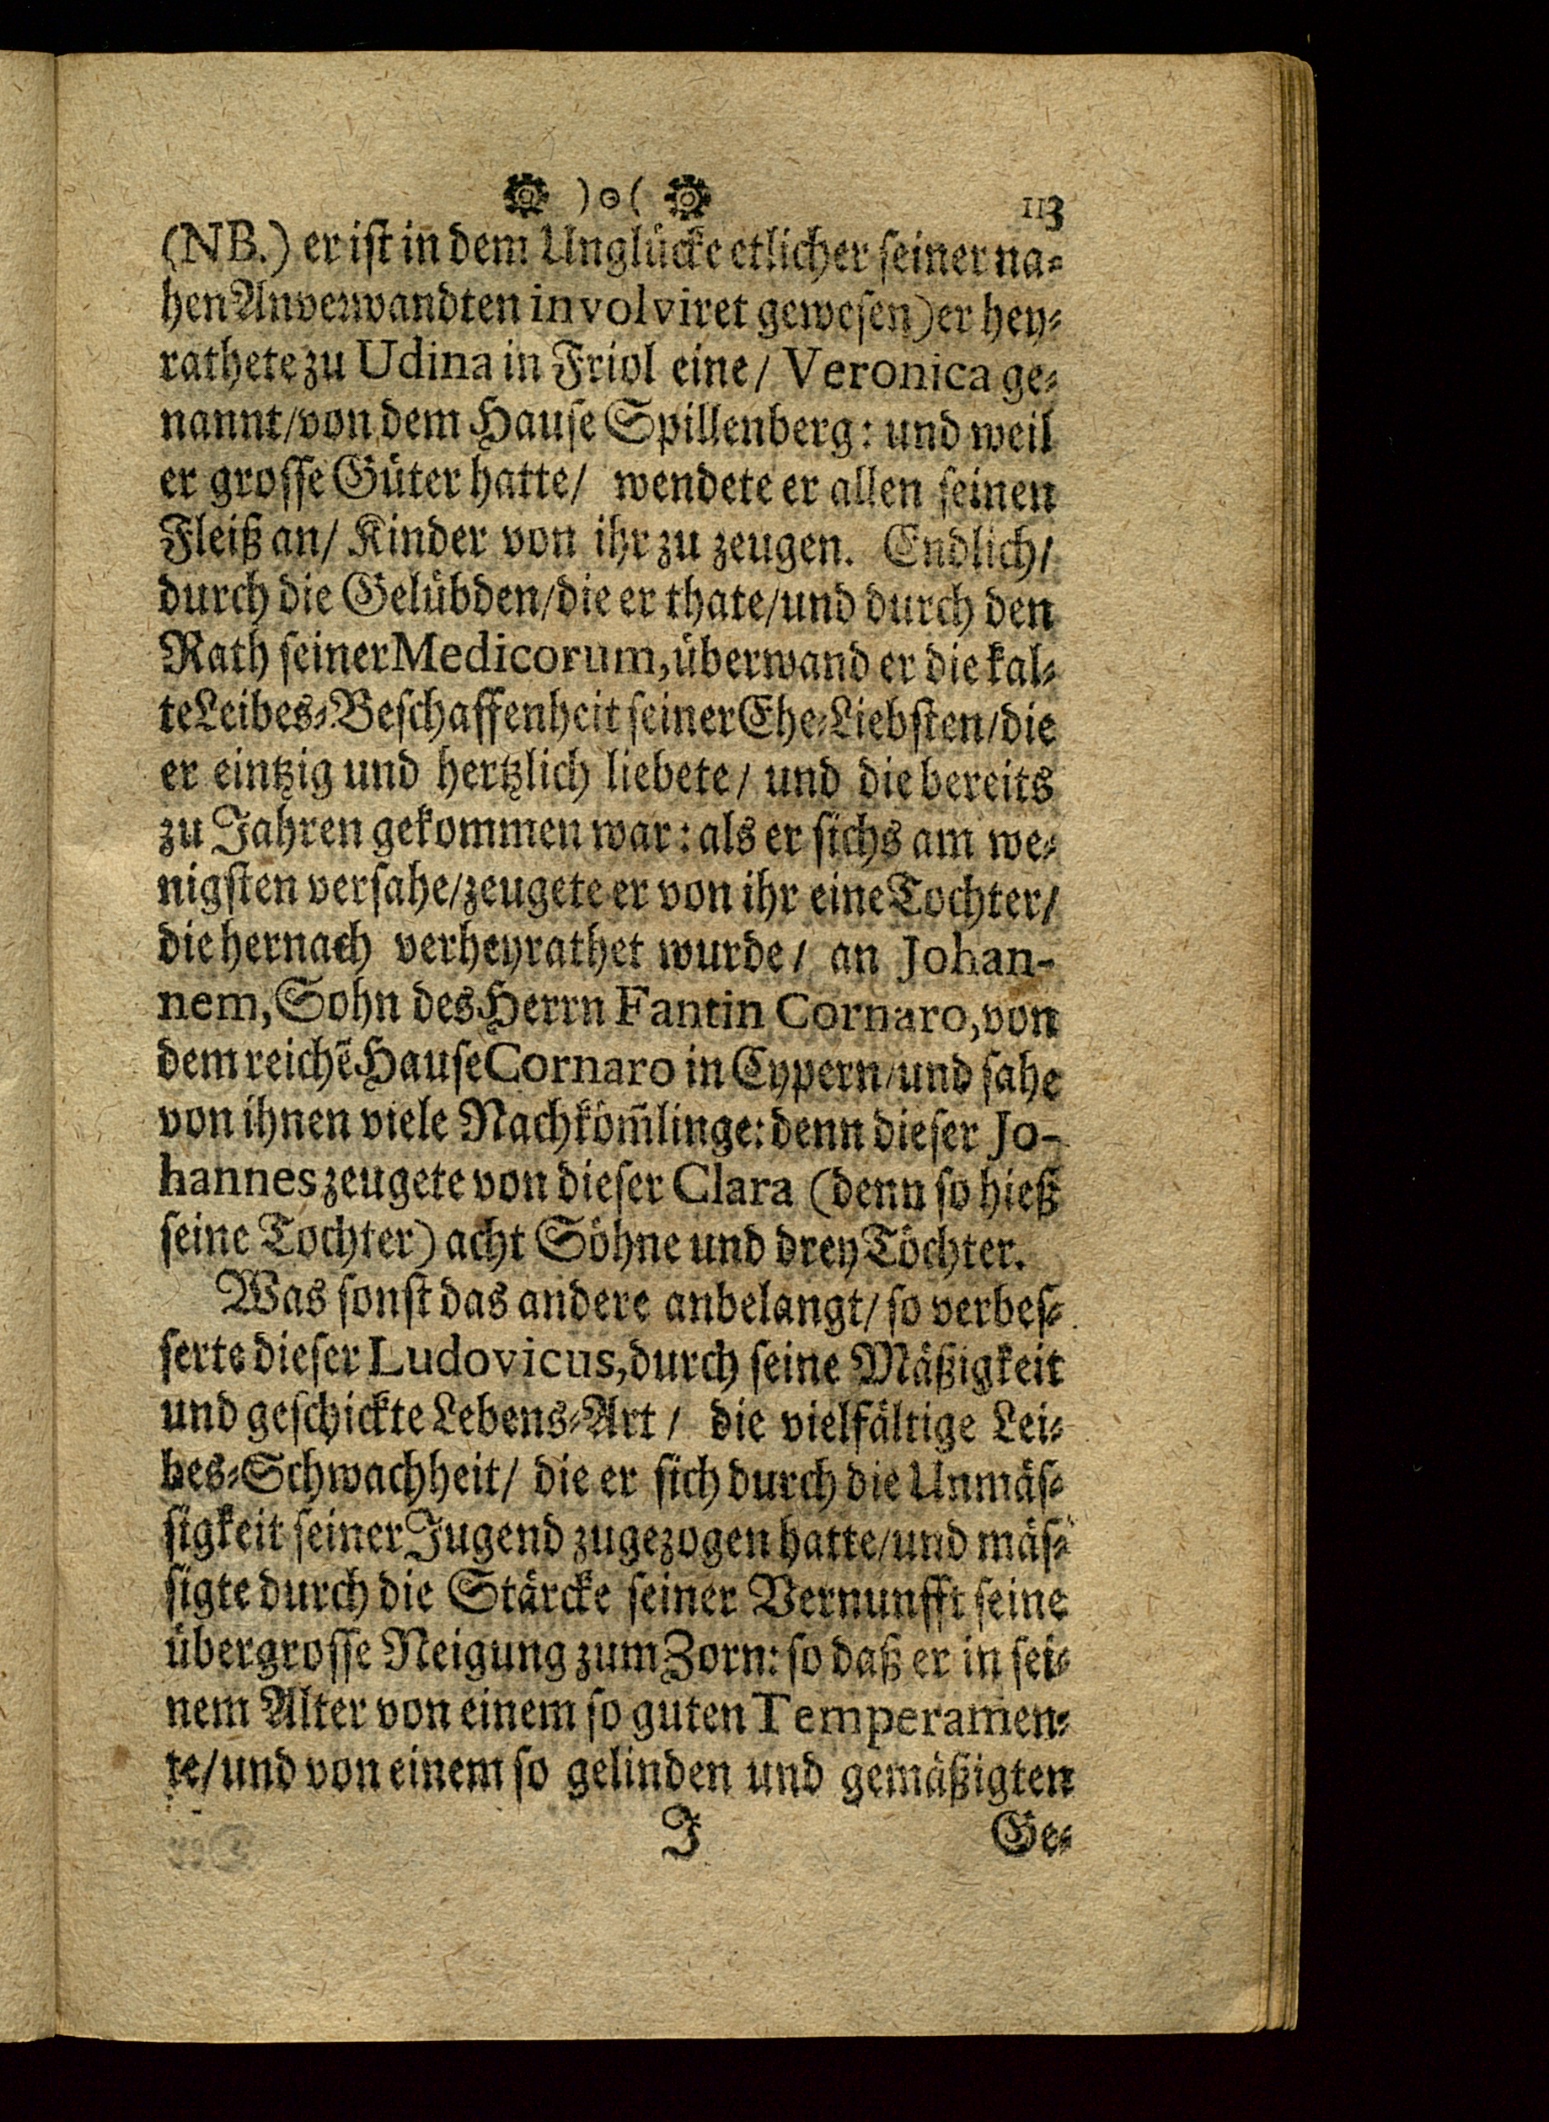 )o( 113
(NB.) er ist in dem Unglücke etlicher seiner na-
hen Anverwandten involviret gewesen) er hey-
rathete zu Udina in Friol eine/ Veronica ge-
nannt/von dem Hause Spillenberg: und weil
er grosse Güter hatte/ wendete er allen seinen
Fleiß an/ Kinder von ihr zu zeugen. Endlich/
durch die Gelübden/die er thate/und durch den
Rath seiner Medicorum, überwand er die kal-
te Leibes-Beschaffenheit seiner Ehe-Liebsten/die
er eintzig und hertzlich liebete/ und die bereits
zu Jahren gekommen war: als er sichs am we-
nigsten versahe/zeugete er von ihr eine Tochter/
die hernach verheyrathet wurde/ an Johan-
nem, Sohn des Herrn Fantin Cornaro, von
dem reichẽ Hause Cornaro in Cypern/und sahe
von ihnen viele Nachköm̃linge: denn dieser Jo-
hannes zeugete von dieser Clara (denn so hieß
seine Tochter) acht Söhne und drey Töchter.
Was sonst das andere anbelangt/ so verbes-
serte dieser Ludovicus, durch seine Mäßigkeit
und geschickte Lebens-Art/ die vielfältige Lei-
bes-Schwachheit/ die er sich durch die Unmäs-
sigkeit seiner Jugend zugezogen hatte/und mäs-
sigte durch die Stärcke seiner Vernunfft seine
übergrosse Neigung zum Zorn: so daß er in sei-
nem Alter von einem so guten Temperamen-
te/und von einem so gelinden und gemäßigten
J Ge-